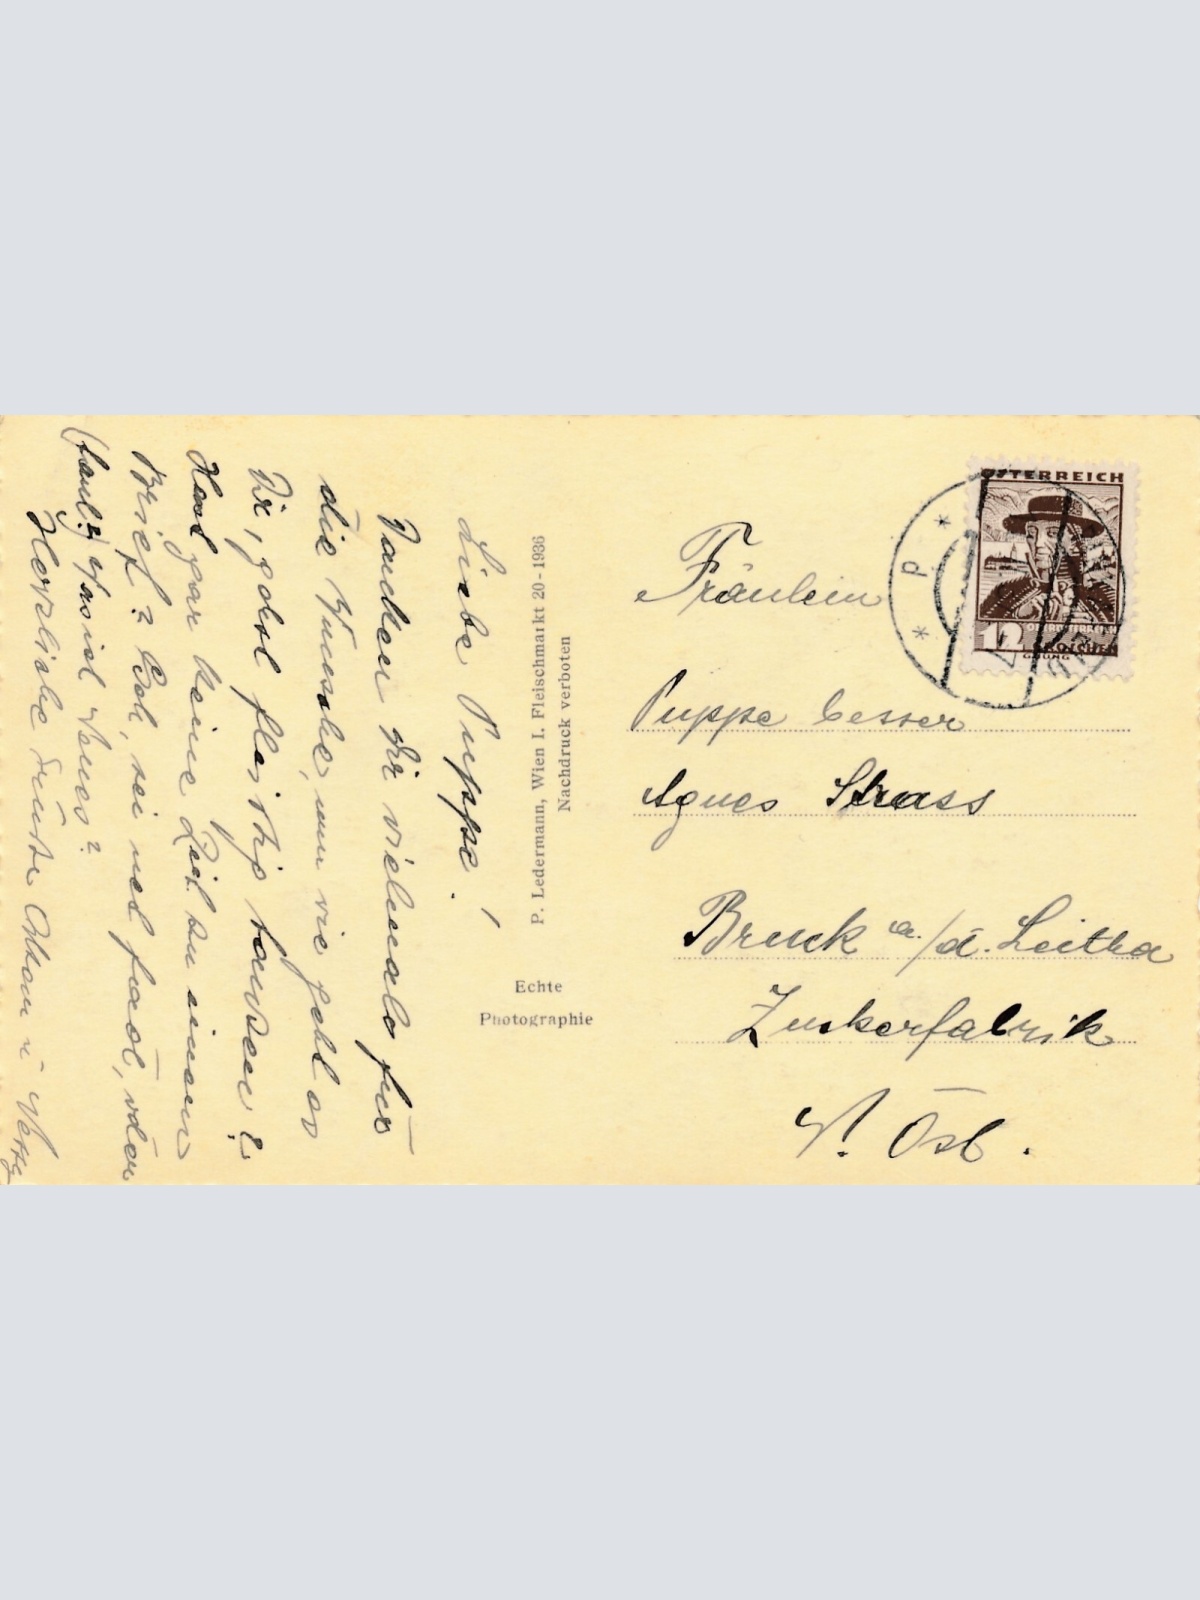 Liebe Puppe!
Danken Dir vielmals für
die Wünsche, nun wie geht es
Dir, gehst fleissig tanzen?
Hast gar keine Zeit zu einem
Brief? Geh, sei net fad, oder
(faul?) Was ist Neues?
Herzliche Grüsse
P. Ledermann, Wien I. Fleischmarkt 20 - 1936
Nachdruck verboten
Echte
Photographie
ÖSTERREICH
12 GROSCHEN
Fräulein
Puppe besser
Agnes Strass
Bruck a./d. Leitha
Zuckerfabrik
N. Öst.